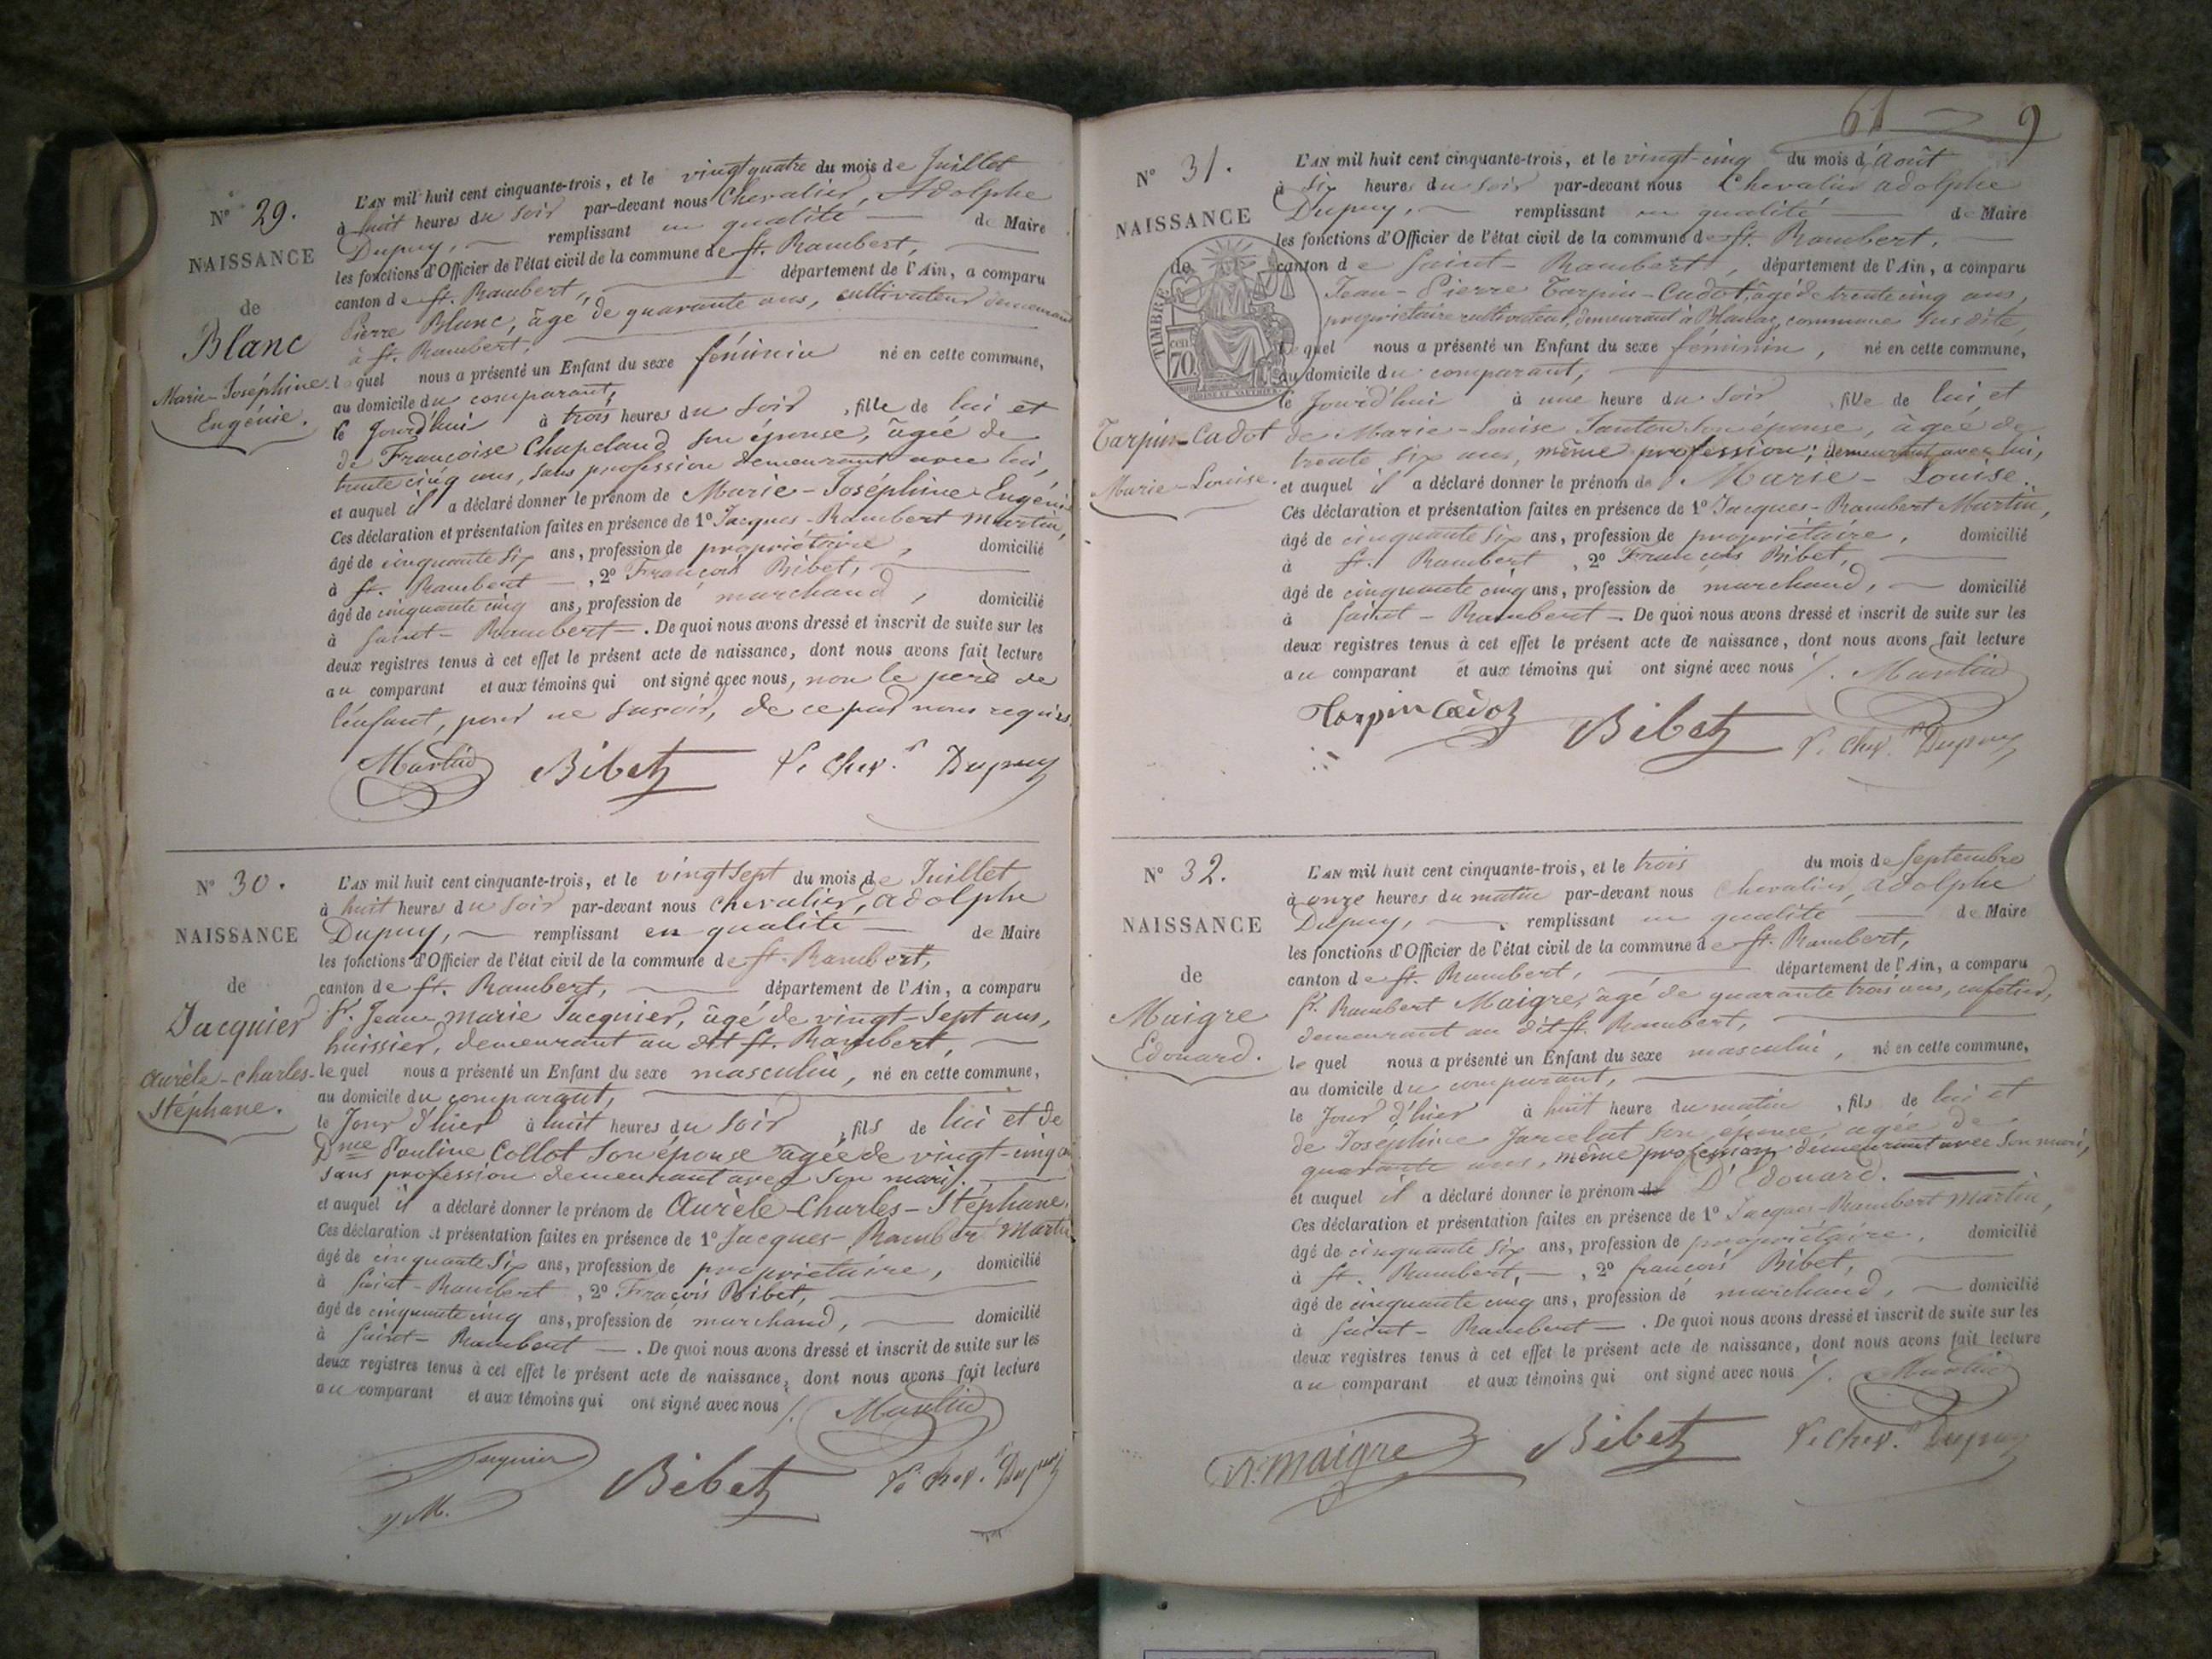 N° 29.
NAISSANCE
de
Blanc
Marie-Joséphine-
Eugénie.
L'AN mil huit cent cinquante-trois, et le vingt quatre du mois de Juillet
à huit heures du soir par-devant nous Chevalier, Adolphe
Dupuy, remplissant en qualité de Maire
les fonctions d'Officier de l'état civil de la commune de St. Rambert,
canton de St. Rambert, département de l'Ain, a comparu
Pierre Blanc, âgé de quarante ans, cultivateur demeurant
à St. Rambert,
lequel nous a présenté un Enfant du sexe féminin né en cette commune,
au domicile du comparant,
le Jourd'hui à trois heures du soir, fille de lui et
de Françoise Chapeland son épouse, âgée de
trente cinq ans, sans profession demeurant avec lui,
et auquel il a déclaré donner le prénom de Marie-Joséphine-Eugénie
Ces déclaration et présentation faites en présence de 1° Jacques-Rambert Martin,
âgé de cinquante six ans, profession de propriétaire, domicilié
à St. Rambert, 2° François Bibet,
âgé de cinquante cinq ans, profession de marchand, domicilié
à Saint-Rambert. De quoi nous avons dressé et inscrit de suite sur les
deux registres tenus à cet effet le présent acte de naissance, dont nous avons fait lecture
au comparant et aux témoins qui ont signé avec nous, non le père de
l'enfant, pour ne savoir, de ce par nous requis.
Martin Bibet Le Cher. Dupuy
N° 30.
NAISSANCE
de
Jacquier
Aurèle-Charles-
Stéphane.
L'AN mil huit cent cinquante-trois, et le vingt sept du mois de Juillet
à huit heures du soir par-devant nous Chevalier, Adolphe
Dupuy, remplissant en qualité de Maire
les fonctions d'Officier de l'état civil de la commune de St. Rambert,
canton de St. Rambert, département de l'Ain, a comparu
Sr. Jean-marie Jacquier, âgé de vingt-sept ans,
huissier, demeurant au dit St. Rambert,
lequel nous a présenté un Enfant du sexe masculin, né en cette commune,
au domicile du comparant,
le Jour d'hier à huit heures du soir, fils de lui et de
Dme Pauline Collot son épouse âgée de vingt-cinq
sans profession demeurant avec son mari.
et auquel il a déclaré donner le prénom de Aurèle-Charles-Stéphane.
Ces déclaration et présentation faites en présence de 1° Jacques-Rambert Martin
âgé de cinquante six ans, profession de propriétaire, domicilié
à Saint-Rambert, 2° Fraçois Bibet,
âgé de cinquante cinq ans, profession de marchand, domicilié
à Saint-Rambert. De quoi nous avons dressé et inscrit de suite sur les
deux registres tenus à cet effet le présent acte de naissance, dont nous avons fait lecture
au comparant et aux témoins qui ont signé avec nous /. Martin
Jacquier
Bibet Le Cher. Dupuy
61 9
N° 31.
NAISSANCE
de
TIMBRE
cen
70
Tarpin-Cadot
Marie-Louise.
L'AN mil huit cent cinquante-trois, et le vingt-cinq du mois d'août
à six heures du soir par-devant nous Chevalier Adolphe
Dupuy, remplissant en qualité de Maire
les fonctions d'Officier de l'état civil de la commune de St. Rambert.
canton de Saint-Rambert, département de l'Ain, a comparu
Jean-Pierre Tarpin-Cadot, âgé de trente cinq ans,
propriétaire cultivateur, demeurant à commune susdite,
lequel nous a présenté un Enfant du sexe féminin, né en cette commune,
au domicile du comparant,
le Jourd'hui à une heure du soir, fille de lui et
de Marie-Louise son épouse, âgée de
trente six ans, même profession; demeurant avec lui,
et auquel il a déclaré donner le prénom de Marie-Louise.
Ces déclaration et présentation faites en présence de 1° Jacques-Rambert Martin,
âgé de cinquante six ans, profession de propriétaire, domicilié
à St. Rambert, 2° François Bibet,
âgé de cinquante cinq ans, profession de marchand, domicilié
à Saint-Rambert. De quoi nous avons dressé et inscrit de suite sur les
deux registres tenus à cet effet le présent acte de naissance, dont nous avons fait lecture
au comparant et aux témoins qui ont signé avec nous /. Martin
Tarpin Cadot Bibet Le Cher. Dupuy
N° 32.
NAISSANCE
de
Maigre
Edouard.
L'AN mil huit cent cinquante-trois, et le trois du mois de Septembre
à onze heures du matin par-devant nous Chevalier, Adolphe
Dupuy, remplissant en qualité de Maire
les fonctions d'Officier de l'état civil de la commune de St. Rambert,
canton de St. Rambert, département de l'Ain, a comparu
Sr. Rambert Maigre, âgé de quarante trois ans, cafetier,
demeurant au dit St. Rambert,
lequel nous a présenté un Enfant du sexe masculin, né en cette commune,
au domicile du comparant,
le Jour d'hier à huit heure du matin, fils de lui et
de Joséphine son épouse âgée de
quarante ans, même profession demeurant avec son mari,
et auquel il a déclaré donner le prénom D'Edouard.
Ces déclaration et présentation faites en présence de 1° Jacques-Rambert Martin,
âgé de cinquante six ans, profession de propriétaire, domicilié
à St. Rambert, 2° françois Bibet,
âgé de cinquante cinq ans, profession de marchand, domicilié
à Saint-Rambert. De quoi nous avons dressé et inscrit de suite sur les
deux registres tenus à cet effet le présent acte de naissance, dont nous avons fait lecture
au comparant et aux témoins qui ont signé avec nous /. Martin
R. Maigre Bibet Le Cher. Dupuy